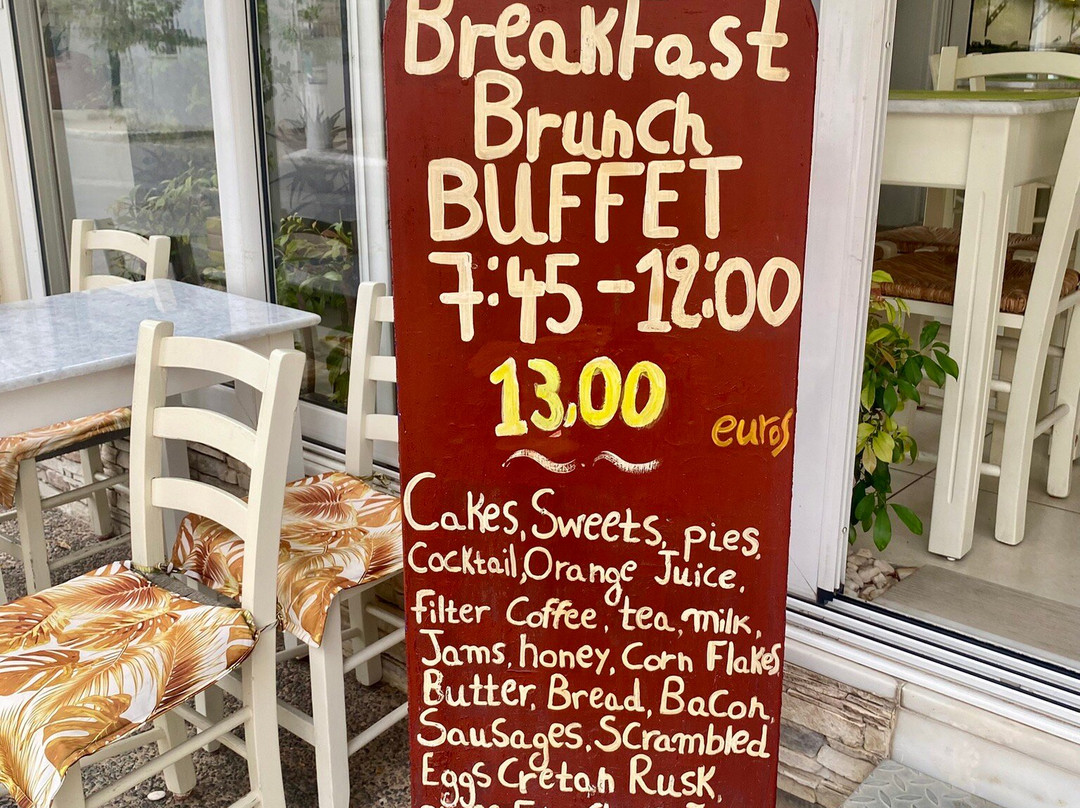 Breakfast
Brunch
BUFFET
7:45 - 12:00
13,00
euros
Cakes, Sweets, pies,
Cocktail, Orange Juice,
filter Coffee, tea, milk,
Jams, honey, Corn Flakes
Butter, Bread, Bacon,
Sausages, Scrambled
Eggs Cretan Rusk,